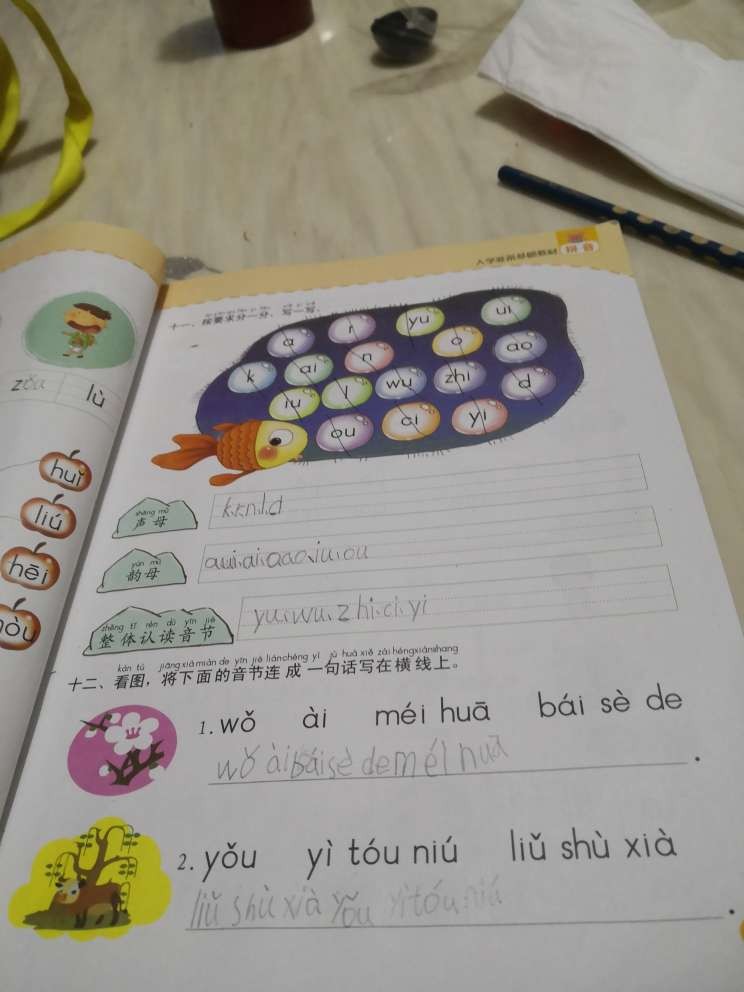 入学准备基础教材 拼音
十一、按要求分一分、写一写。
a r yu o ui
k ai n wu zhi ao
iu l ou ci yi d
zǒu lù
huí
liú
hēi
shēng mǔ
声母
k.r.n.l.d
yùn mǔ
韵母
a.ui.ai.o.ao.iu.ou
zhěng tǐ rèn dú yīn jié
整体认读音节
yu.wu.zhi.ci.yi
kàn tú jiāng xià miàn de yīn jié liánchéng yí jù huà xiě zài héngxiànshang
十二、看图，将下面的音节连成一句话写在横线上。
1. wǒ ài méi huā bái sè de
wǒ ài bái sè de méi huā .
2. yǒu yì tóu niú liǔ shù xià
liǔ shù xià yǒu yì tóu niú .